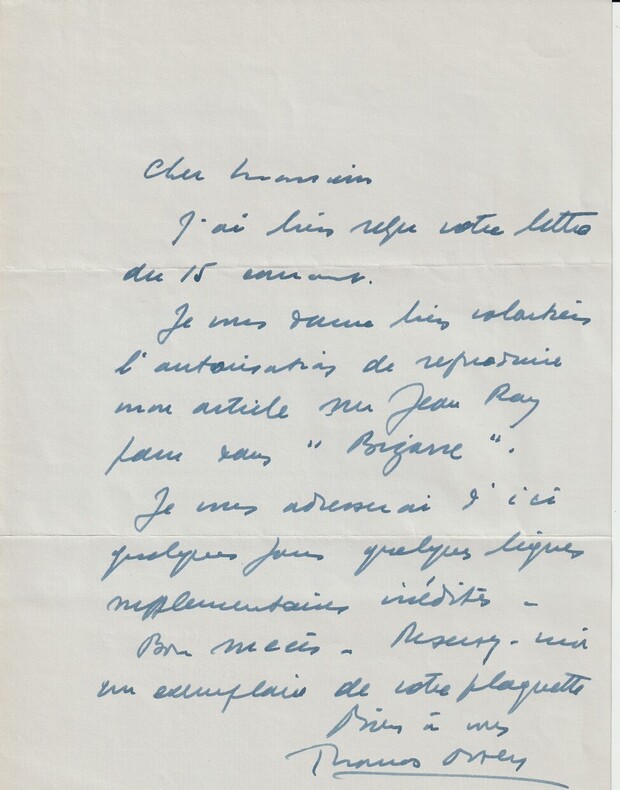 Cher Monsieur
J'ai bien reçu votre lettre
du 15 courant.
Je vous donne bien volontiers
l'autorisation de reproduire
mon article sur Jean Ray
paru dans "Bizarre".
Je vous adresserai d'ici
quelques jours quelques lignes
supplémentaires inédites -
Bon succès - Réservez-moi
un exemplaire de votre plaquette
Bien à vous
Thomas Owen